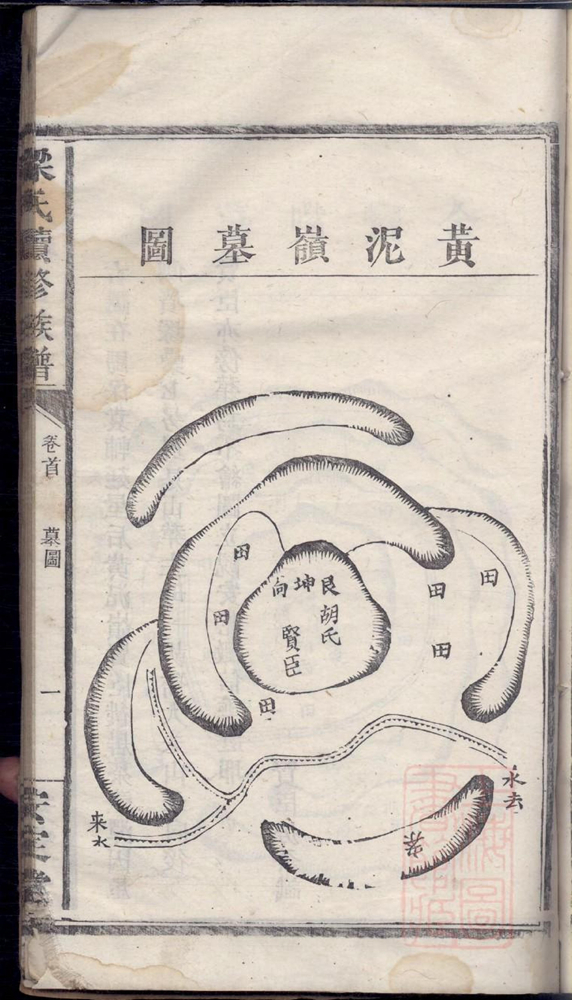 黃泥嶺墓圖
梁氏續修族譜
卷首
墓圖
一
艮坤向
胡氏
賢臣
田
田
田
田
田
田
案
水去
来水